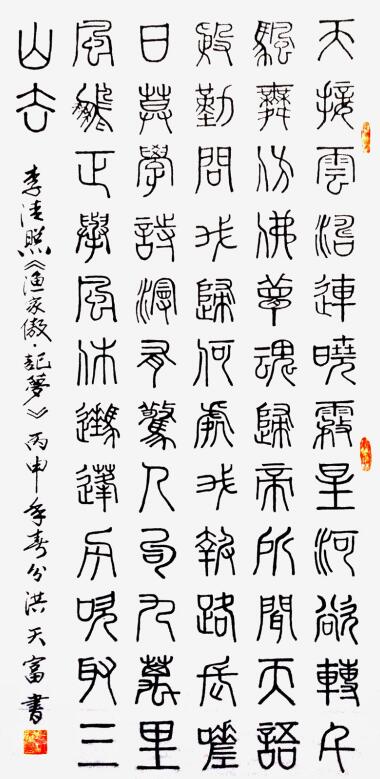 天接雲濤連曉霧星河欲轉千
颿舞仿佛夢魂歸帝所聞天語
殷勤問我歸何處我報路長嗟
日莫學詩漫有驚人句九萬里
風鵬正舉風休蓬舟吹取三
山去
李清照《渔家傲·記夢》丙申年春分洪天富書